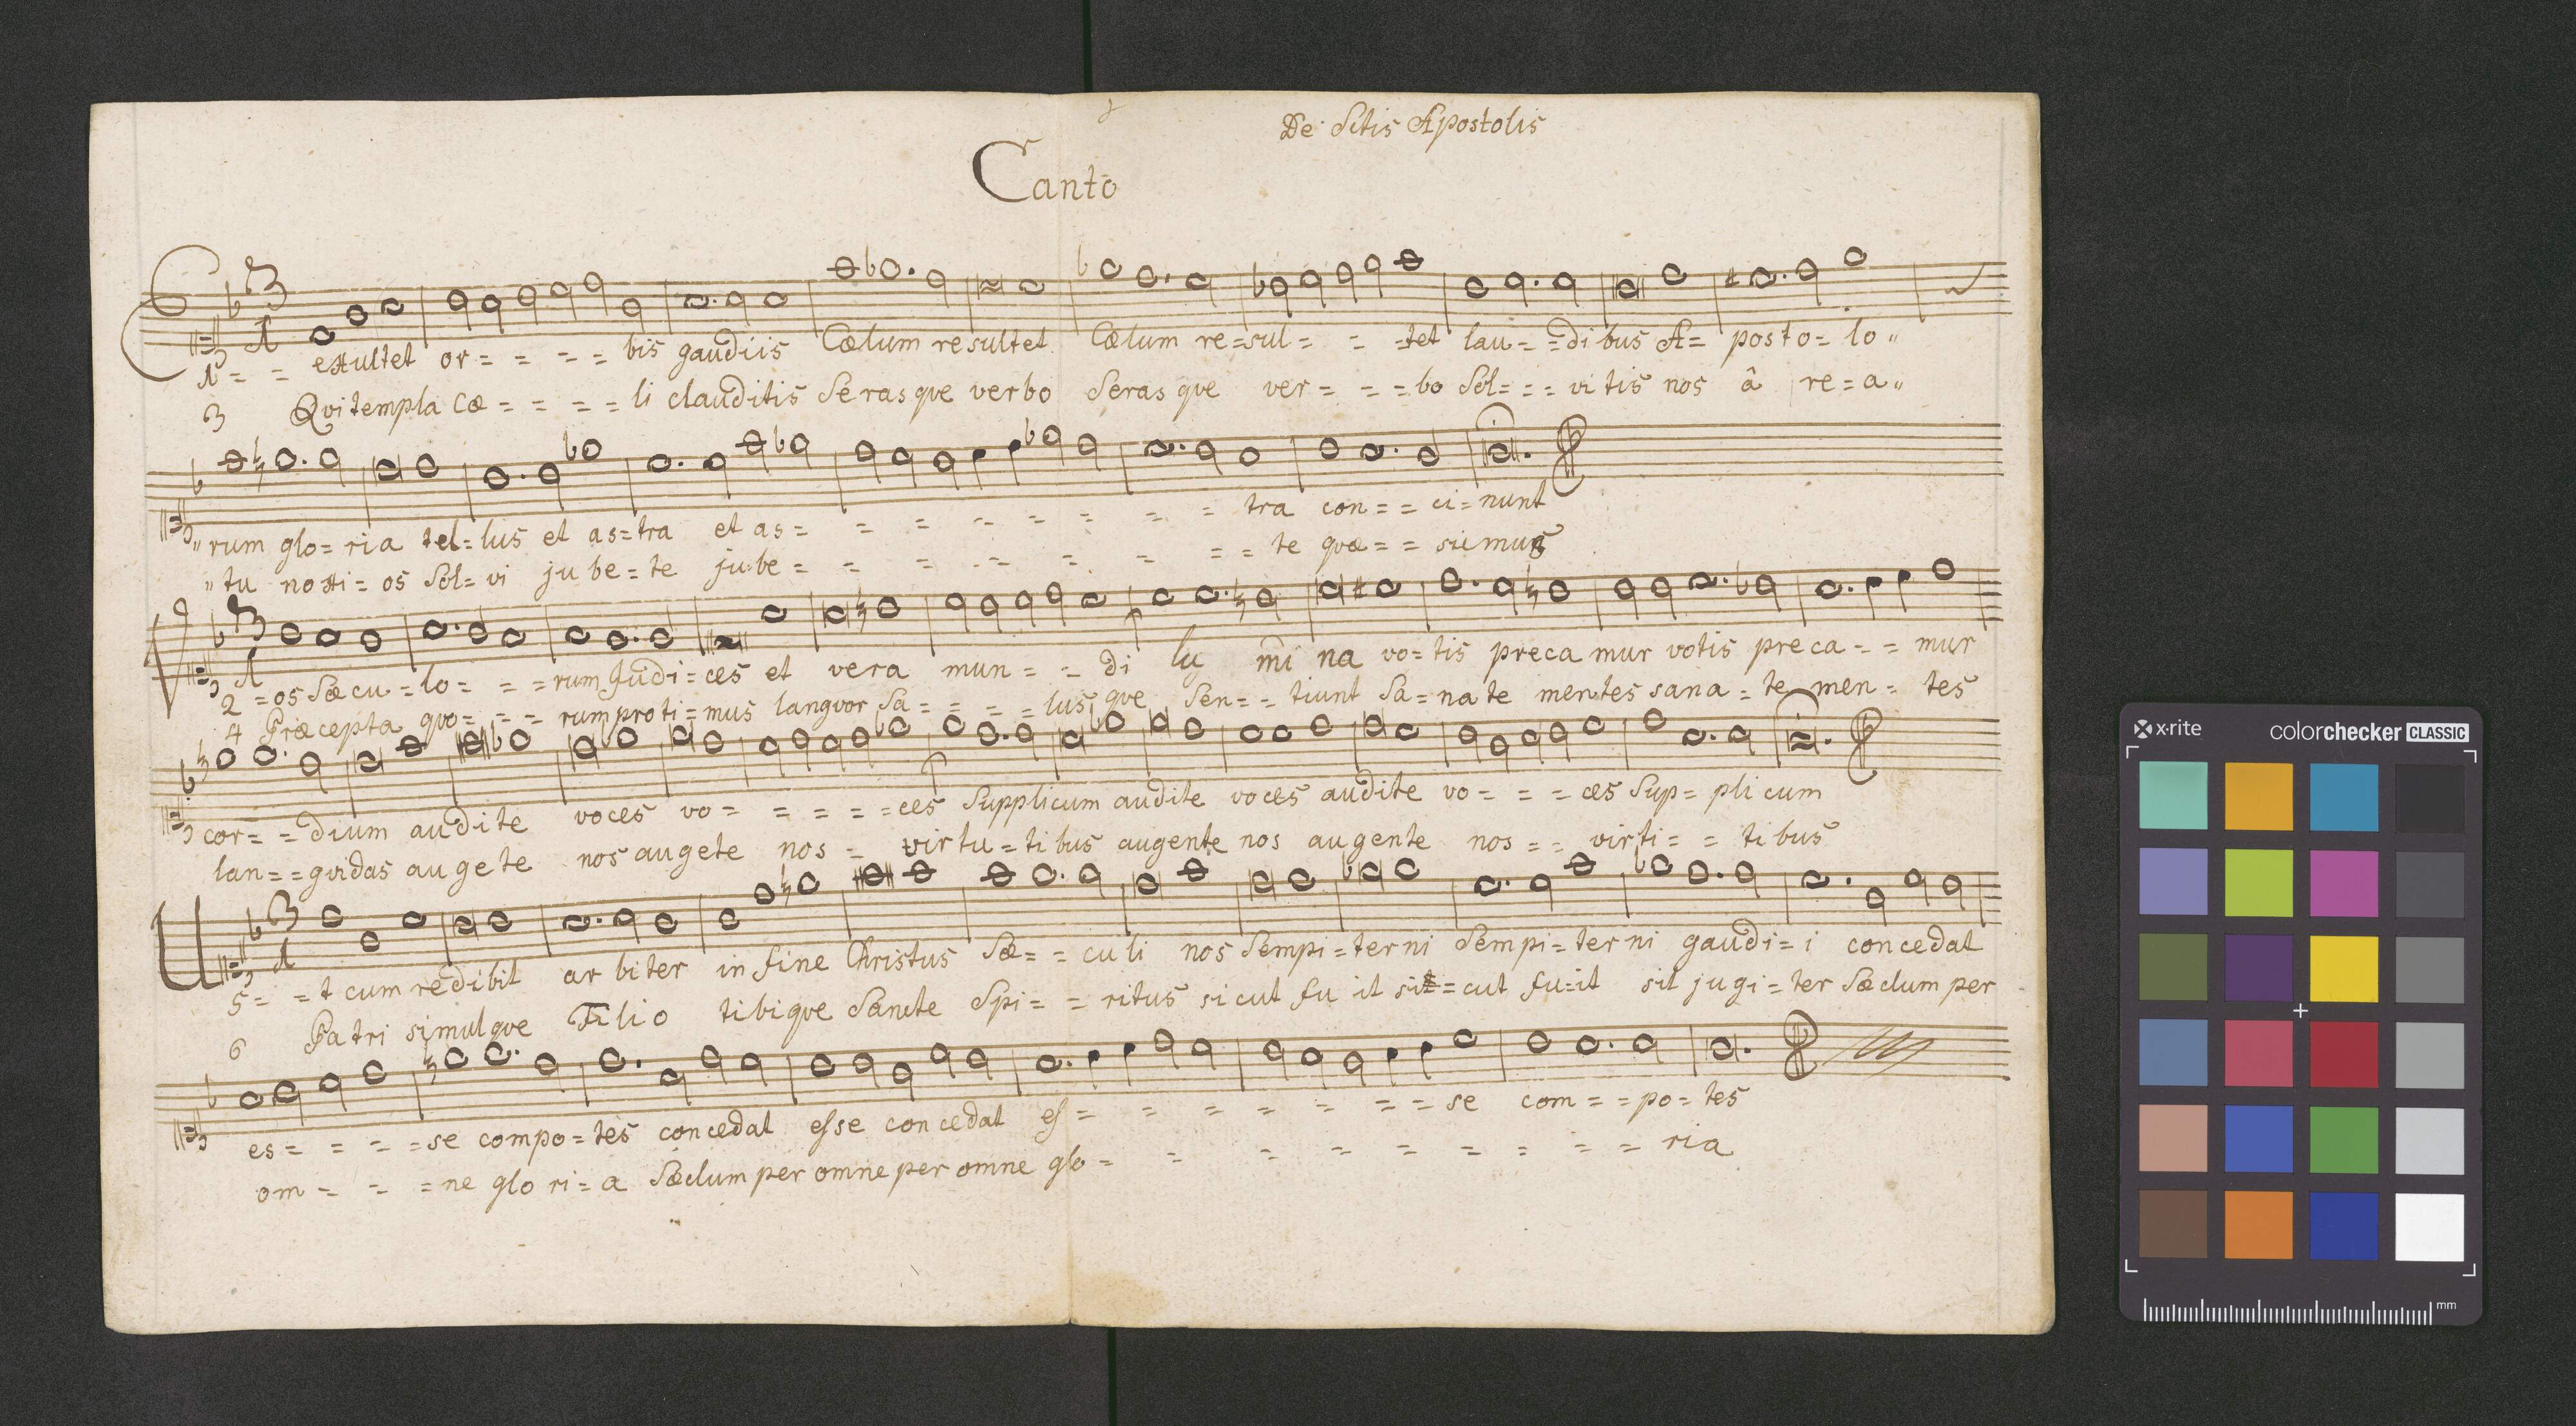 De Sctis Apostolis
Canto
3
1
1 = = exultet or = = = = bis gaudiis Cælum resultet Cælum re = sul = = = tet lau = = di bus A = posto = lo "
3 Qvi templa cæ = = = = li clauditis Seras qve verbo Seras qve ver = = = bo Sol = = = vi tis nos â re = a "
" rum glo = ria tel = lus et as = tra et as = = = = = = = = tra con = = ci = nunt
" tu noxi = os Sol = vi ju be = te ju be = = = = = = = = te qvæ = = su mus
3
1
2 = os Sæcu = lo = = = rum Judi = ces et vera mun = = di lu mi na vo = tis preca mur votis preca = = mur
4 Præcepta qvo = = = rum proti = mus langvor Sa = = = = lus qve Sen = = tiunt Sa = nate mentes sana = te men = tes
cor = = dium audite voces vo = = = = = ces Supplicum audite voces audite vo = = = ces Sup = pli cum
lan = = gvidas augete nos augete nos = virtu = ti bus augente nos augente nos = = virti = = tibus
U
3
1
5 = = t cum redibit ar biter in fine Christus Sæ = = cu li nos Sempi = terni Sempi = ter ni gaudi = i concedat
6 Patri simul qve Filio tibiqve Sancte Spi = = ritus sicut fu it sit = cut fu = it sit jugi = ter Sæclum per
es = = = = se compo = tes concedat esse concedat es = = = = = = = se com = = po = tes
om = = = ne glo ri = a Sæclum per omne per omne glo = = = = = = = = = ria
x-rite colorchecker CLASSIC
mm